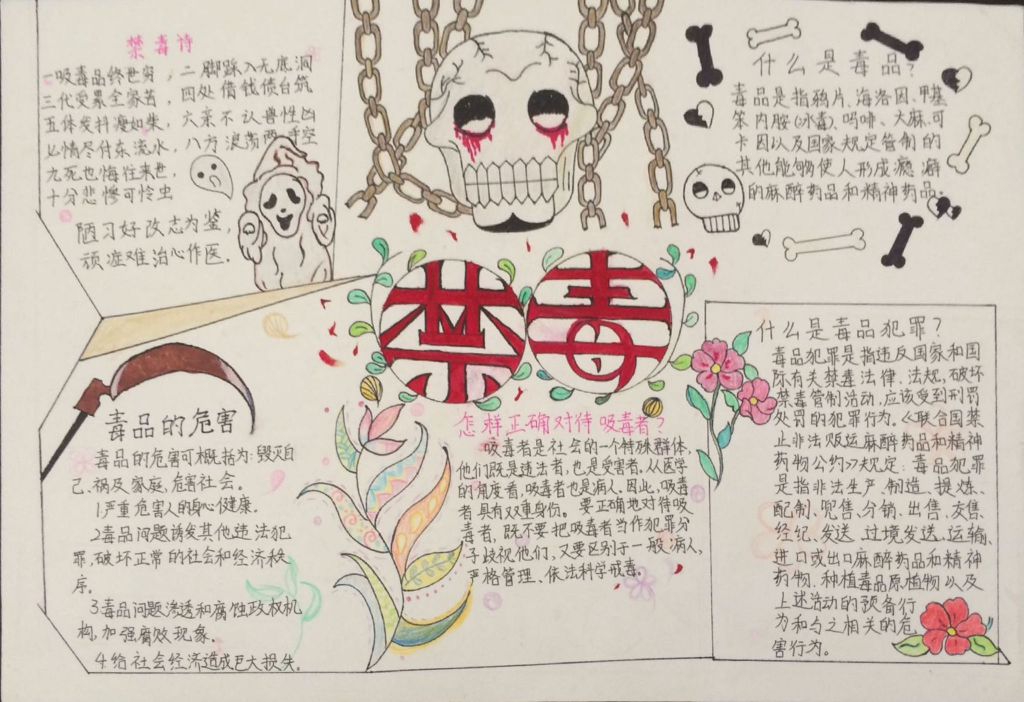 禁毒诗
一吸毒品终世哭，二脚踩入无底洞
三代受累全家苦，四处借钱债台筑
五体发抖瘦如柴，六亲不认兽性凶
七情尽付东流水，八方浪荡两手空
九死也悔往来世，
十分悲惨可怜虫
陋习好改志为鉴，
顽症难治心作医.
什么是毒品？
毒品是指鸦片、海洛因、甲基
苯丙胺(冰毒)、吗啡、大麻、可
卡因以及国家规定管制的
其他能够使人形成瘾癖
的麻醉药品和精神药品.
禁毒
毒品的危害
毒品的危害可概括为:毁灭自
己、祸及家庭,危害社会。
1严重危害人的身心健康.
2毒品问题诱发其他违法犯
罪,破坏正常的社会和经济秩
序。
3毒品问题渗透和腐蚀政权机
构,加强腐败现象.
4给社会经济造成巨大损失.
怎样正确对待吸毒者？
吸毒者是社会的一个特殊群体,
他们既是违法者,也是受害者,从医学
的角度看,吸毒者也是病人.因此,吸毒
者具有双重身份。要正确地对待吸
毒者,既不要把吸毒者当作犯罪分
子歧视他们,又要区别于一般病人,
严格管理、依法科学戒毒.
什么是毒品犯罪？
毒品犯罪是指违反国家和国
际有关禁毒法律、法规,破坏
禁毒管制活动,应该受到刑罚
处罚的犯罪行为.《联合国禁
止非法贩运麻醉药品和精神
药物公约》规定:毒品犯罪
是指非法生产、制造、提炼、
配制、兜售、分销、出售、交售、
经纪、发送、过境发送、运输、
进口或出口麻醉药品和精神
药物、种植毒品原植物以及
上述活动的预备行
为和与之相关的危
害行为。